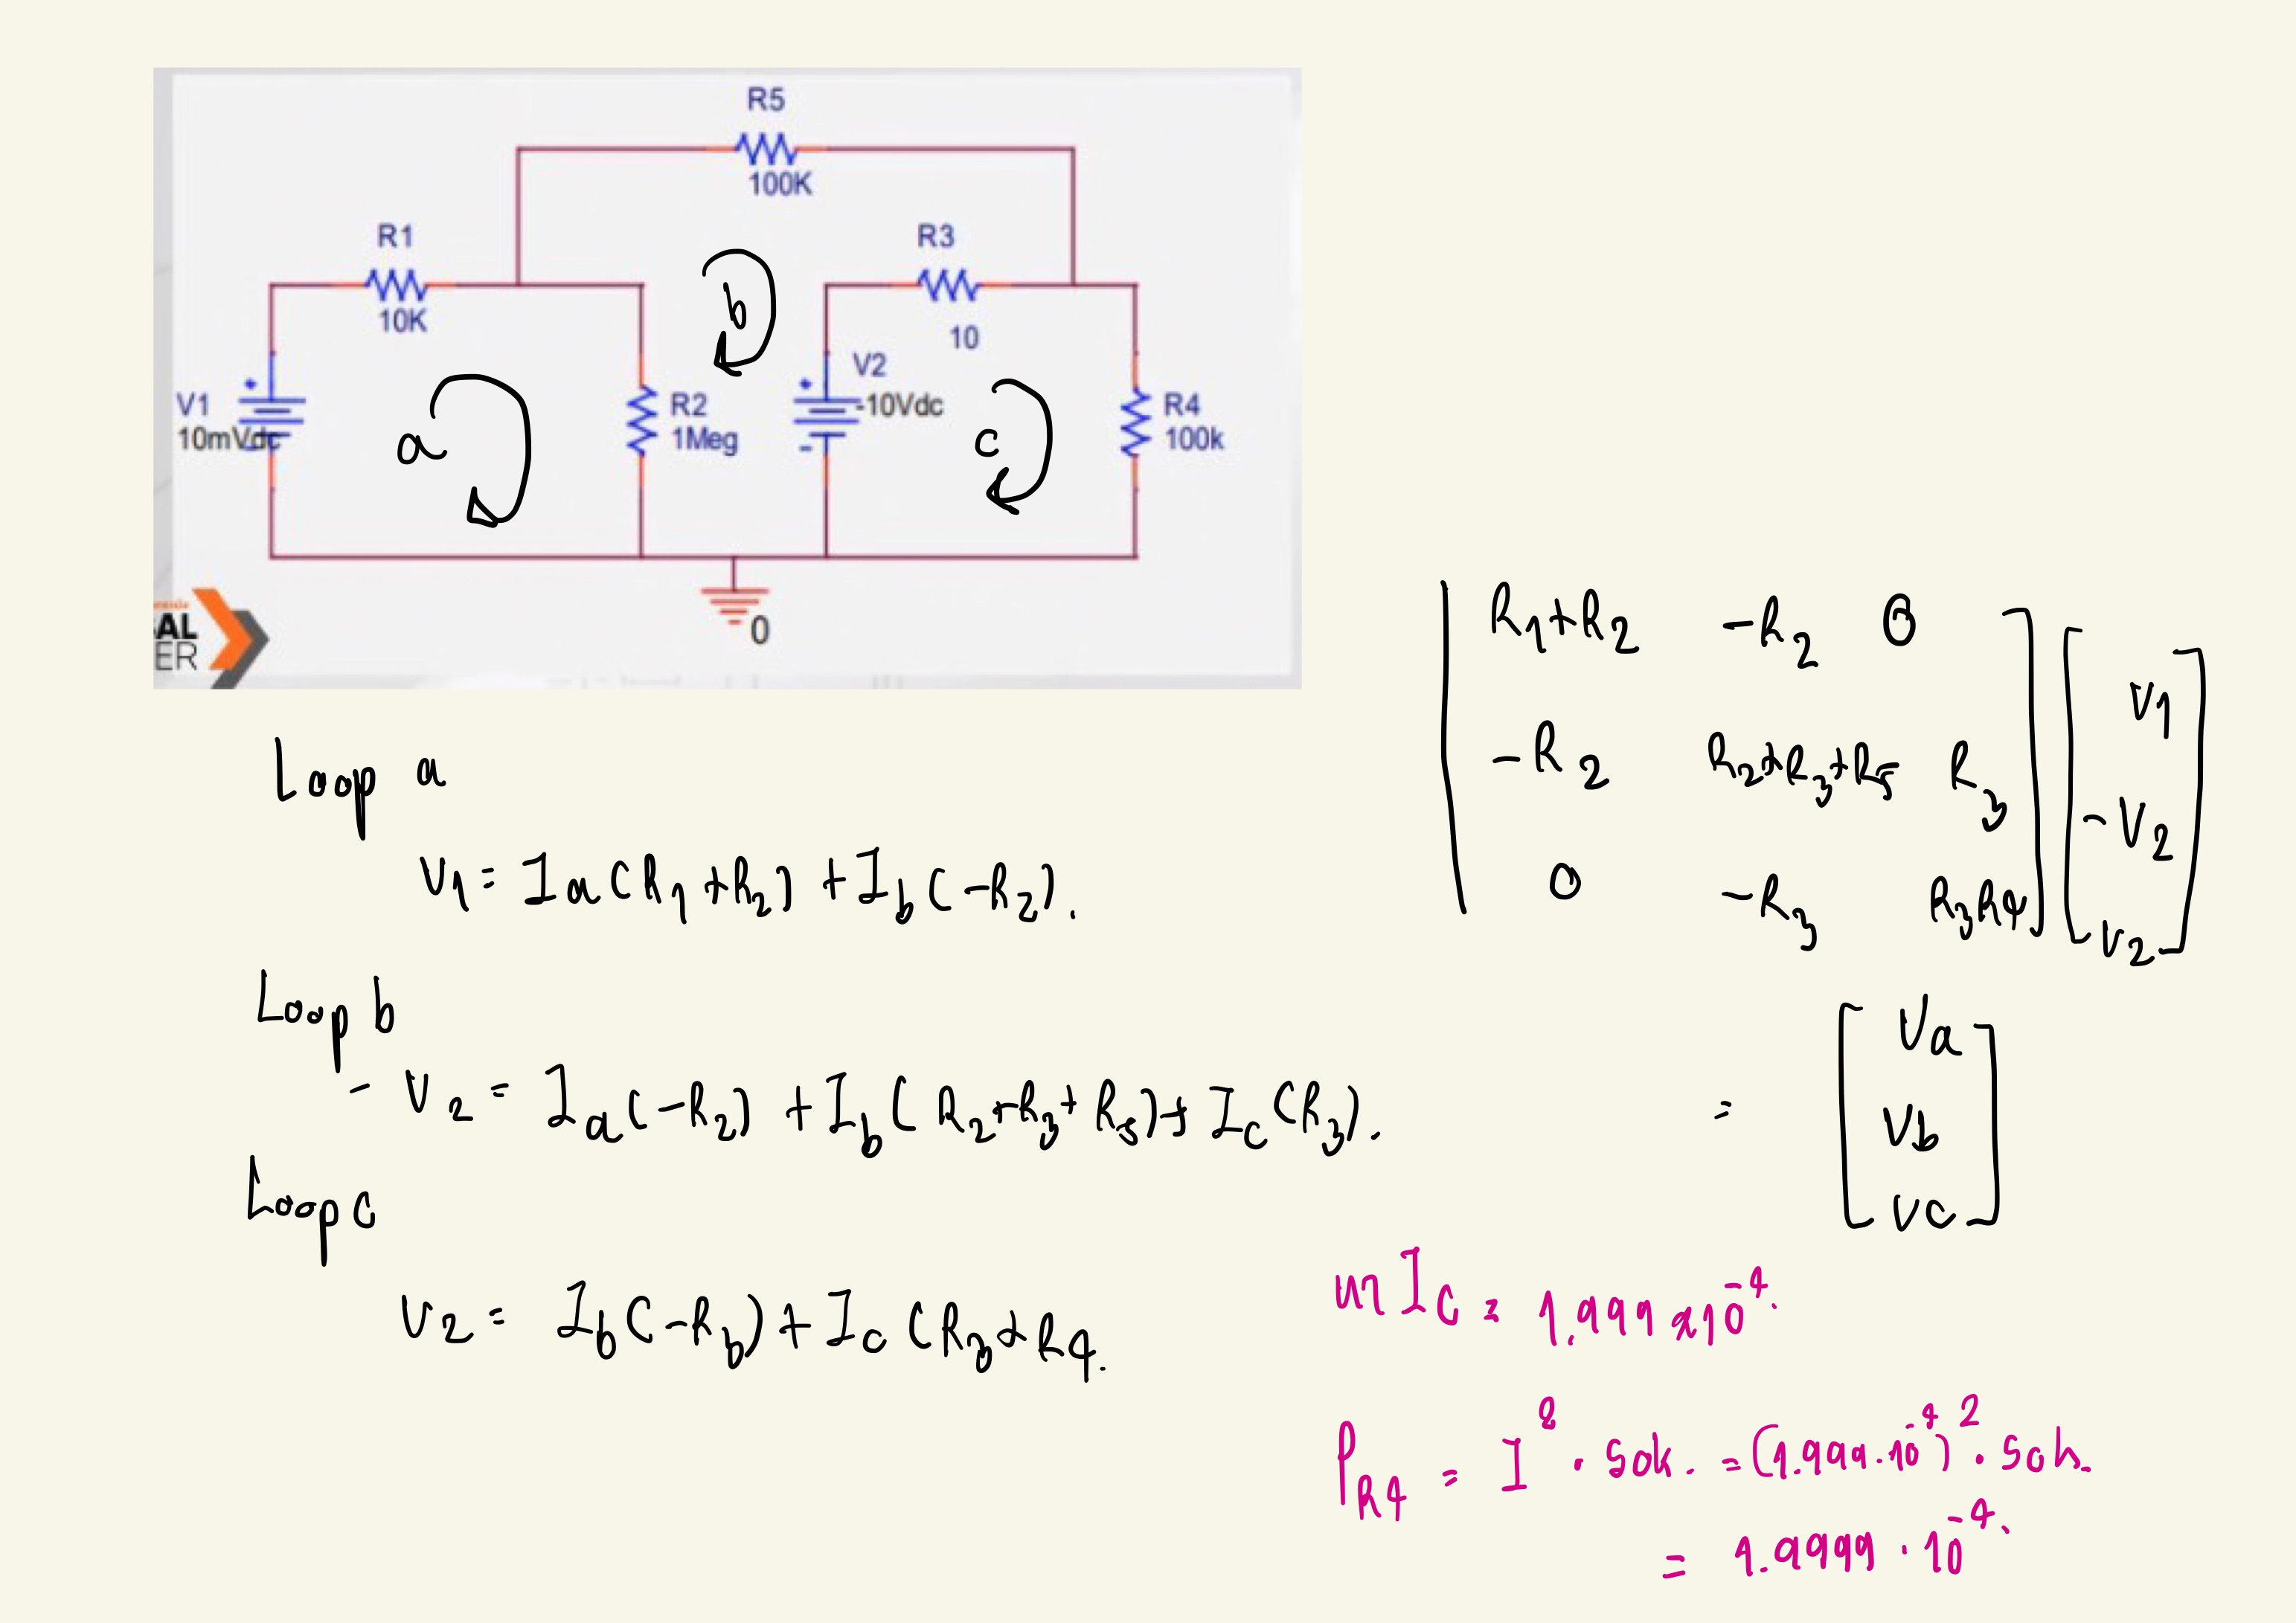 R5
100K
R1
10K
R3
10
V1
10mVdc
a
b
R2
1Meg
V2
-10Vdc
c
R4
100k
0
AL
ER
Loop a
V1 = Ia(R1+R2) + Ib(-R2).
Loop b
-V2 = Ia(-R2) + Ib(R2+R3+R5) + Ic(R3).
Loop c
V2 = Ib(-R3) + Ic(R3+R4.
R1+R2 -R2 0
-R2 R2+R3+R5 R3
0 -R3 R3R4
V1
-V2
V2
=
Va
Vb
Vc
Ic = 1.999 x10^-4.
PR4 = I^2 · 50k. = (1.999·10^-4)^2 · 50k.
= 1.9999 · 10^-4.